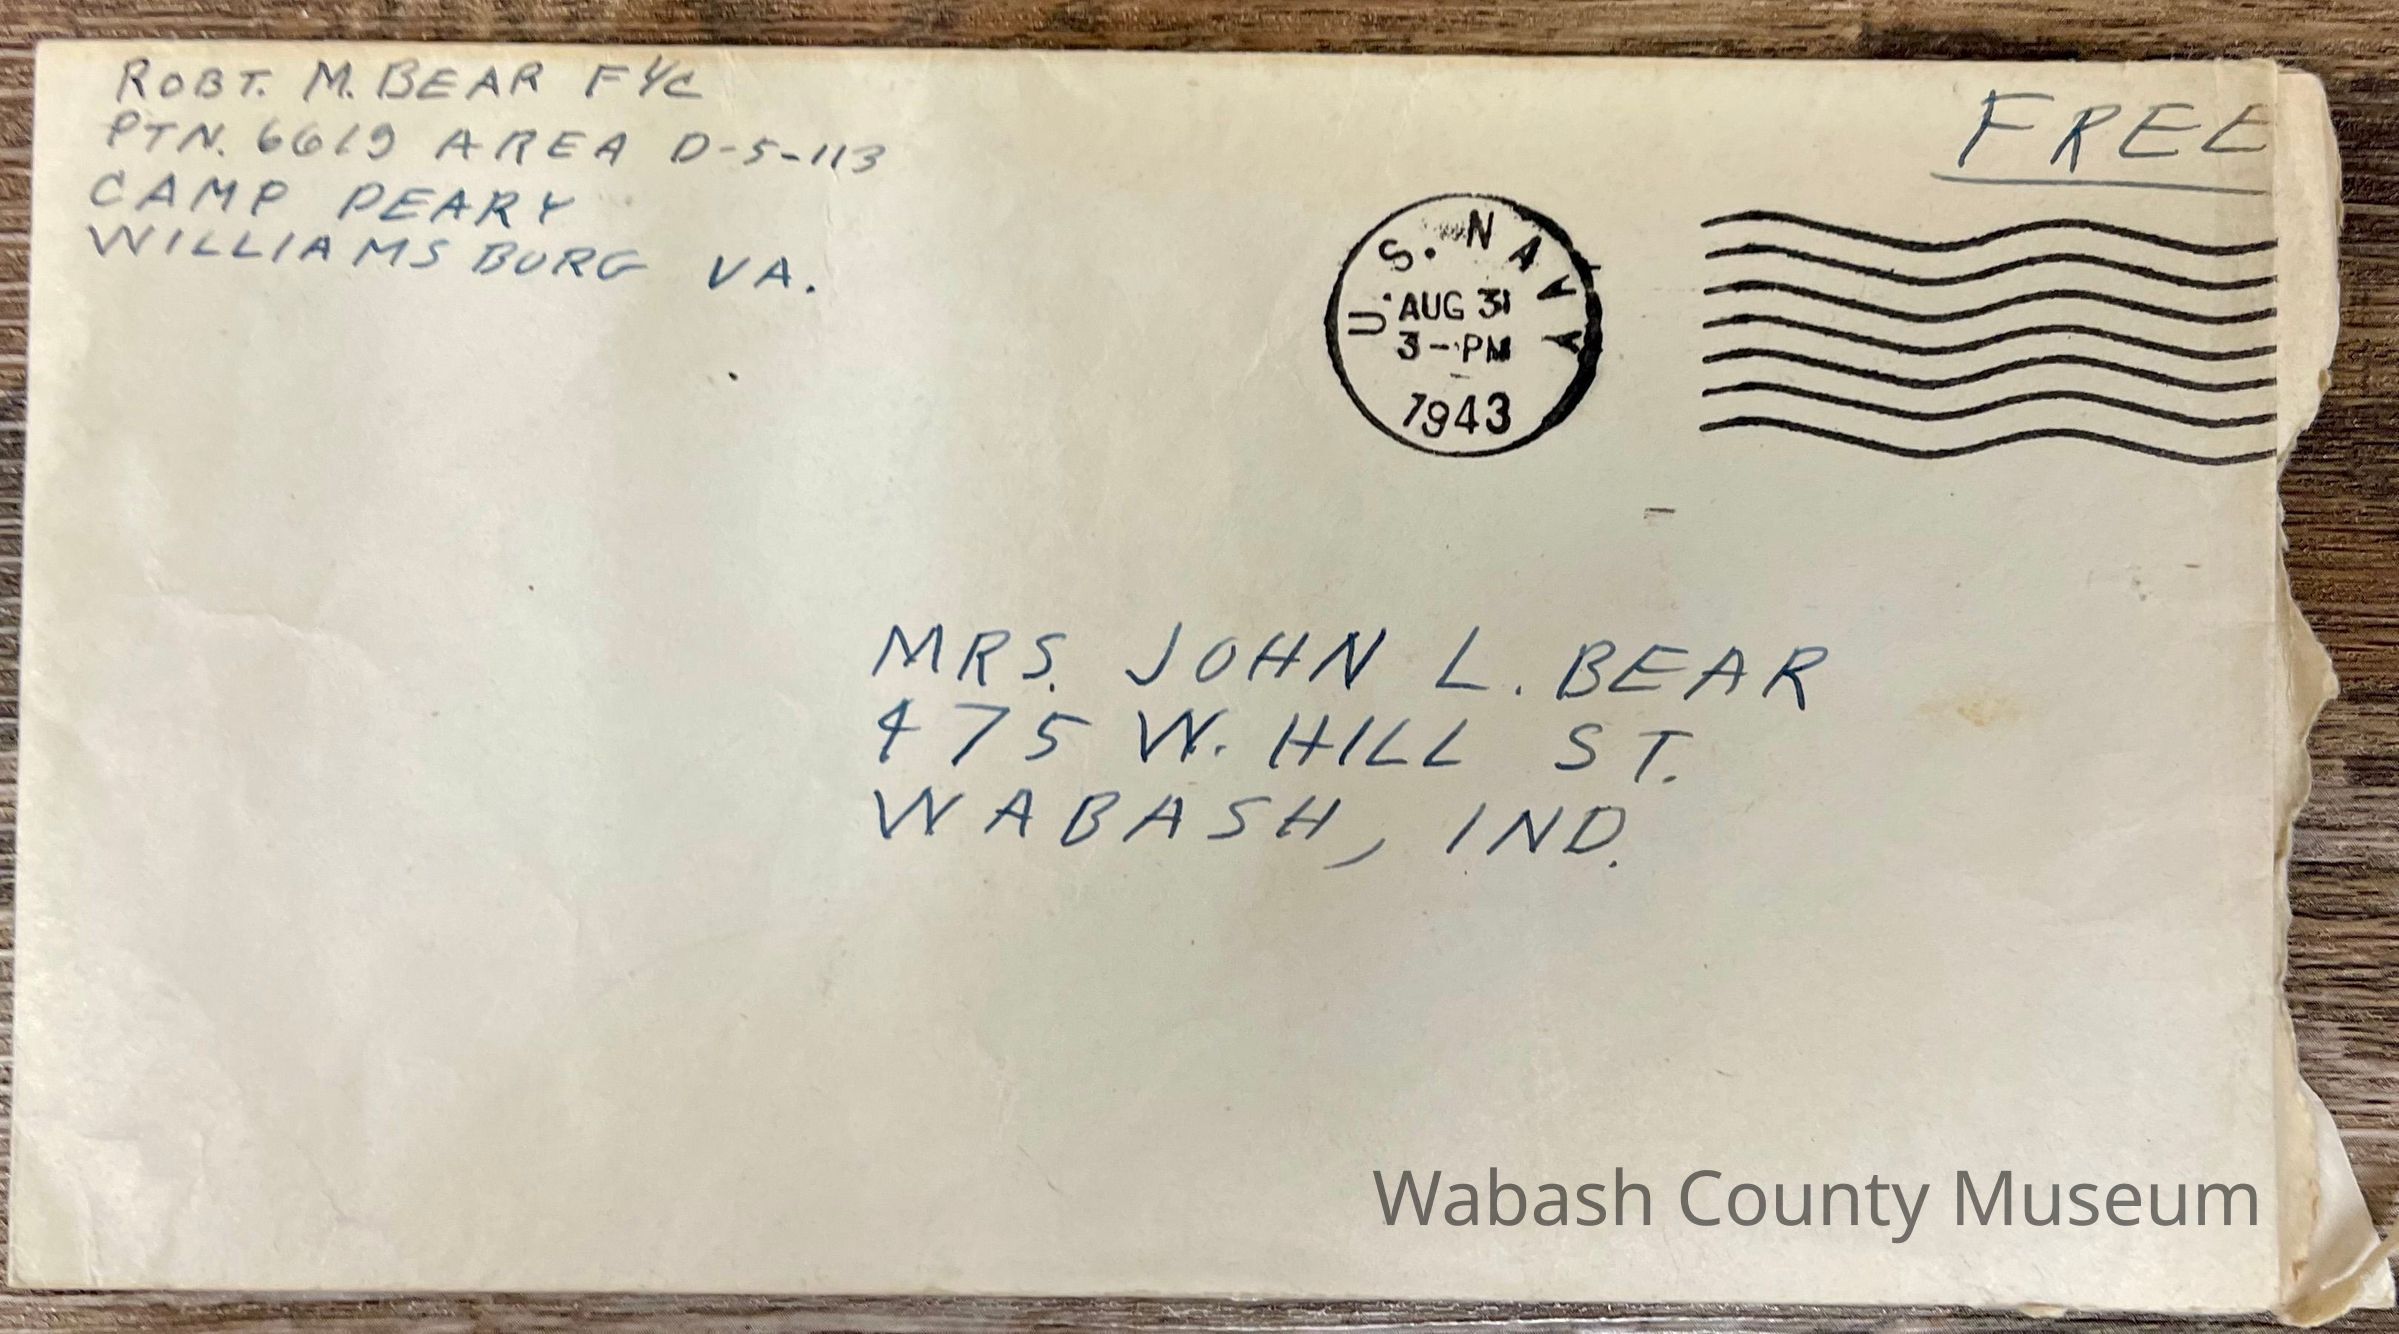 ROBT. M. BEAR F 1/C
PTN. 6619 AREA D-5-113
CAMP PEARY
WILLIAMSBURG VA.
FREE
U.S. NAVY
AUG 31
3-PM
1943
MRS. JOHN L. BEAR
475 W. HILL ST.
WABASH, IND.
Wabash County Museum